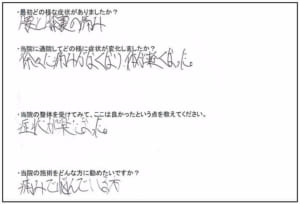 ・最初どの様な症状がありましたか?
腰と膝裏の痛み
・当院に通院してどの様に症状が変化しましたか?
徐々に痛みがなくなり 体が軽くなった。
・当院の整体を受けてみて、ここは良かったという点を教えてください。
症状が楽になった。
・当院の施術をどんな方に勧めたいですか?
痛みで悩んでいる方